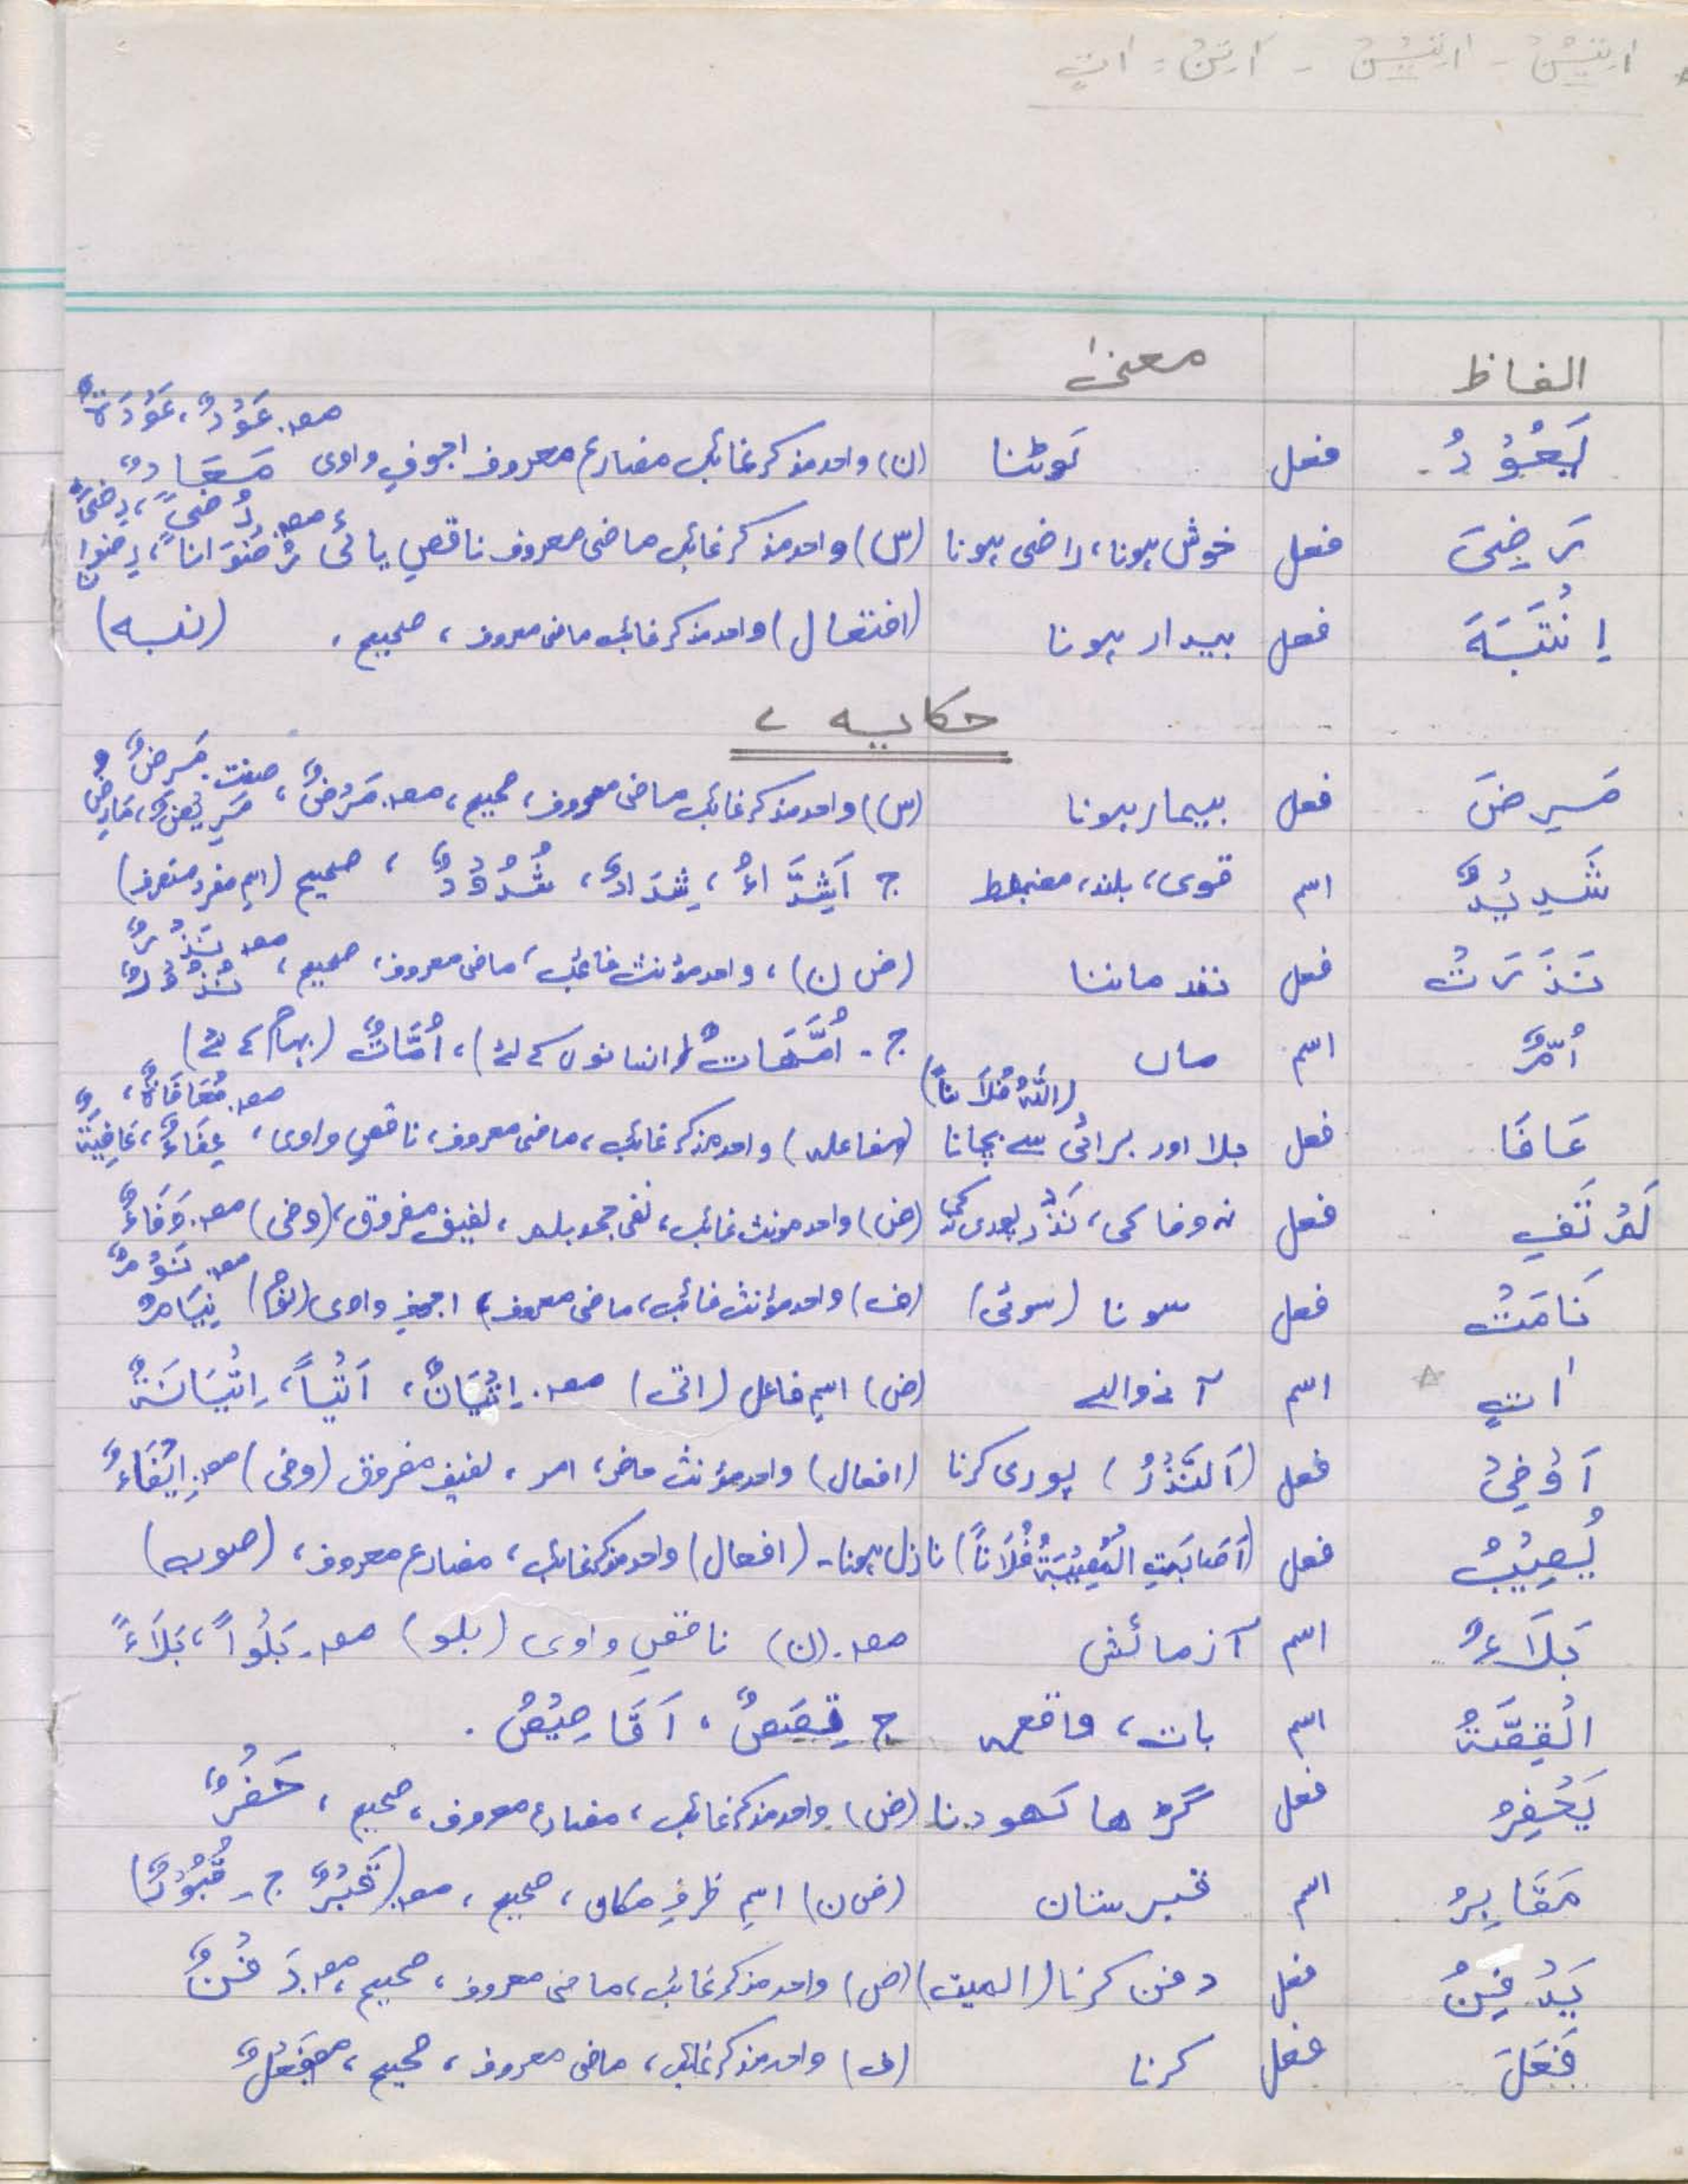 الفاظ معنیٰ
یَعُوْدُ فعل لوٹنا (ن) واحد مذکر غائب مضارع معروف اجوفِ واوی مصہ۔ عَوْدٌ، عَوْدَةٌ مَعَادٌ
رَضِیَ فعل خوش ہونا، راضی ہونا (س) واحد مذکر غائب ماضی معروف ناقصِ یائی مصہ۔ رُضًی، رِضًی رُضْوَانًا، رِضوان
اِنْتَبَهَ فعل بیدار ہونا (افتعال) واحد مذکر غائب ماضی معروف، صحیح، (نبه)
حکایه ۷
مَرِضَ فعل بیمار ہونا (س) واحد مذکر غائب ماضی معروف، صحیح، مصہ۔ مَرَضٌ، صفت۔ مَرِضٌ و مَرِیْضٌ، مَارِضٌ
شَدِیْدٌ اسم قوی، بلند، مضبط ج اَشِدَّاءُ، شِدَادٌ، شُدُوْدٌ، صحیح (اسم مفرد منصرف)
نَذَرَتْ فعل نذر ماننا (ض ن)، واحد مؤنث غائب، ماضی معروف، صحیح، مصہ نَذْرٌ نُذُوْرٌ
اُمٌّ اسم ماں ج۔ اُمَّهَاتٌ (انسانوں کے لئے)، اُمَّاتٌ (بہائم کے لئے)
عَافَا فعل بلا اور برائی سے بچانا (اللّٰهُ فُلَانًا) (مفاعلہ) واحد مذکر غائب، ماضی معروف، ناقصِ واوی، مصہ۔ مُعَافَاةٌ، عِفَاءٌ، عَافِیَةٌ
لَمْ تَفِ فعل نہ وفا کی، نَذْر پوری کی (ض) واحد مونث غائب، نفی جحد بلم، لفیف مفروق، (وفی) مصہ۔ وَفَاءٌ
نَامَتْ فعل سونا (سوئی) (ف) واحد مؤنث غائب، ماضی معروف، اجوفِ واوی (نوم) مصہ۔ نَوْمٌ نِیَامٌ
اٰتٍ اسم آنے والے (ض) اسمِ فاعل (اتی) مصہ۔ اِتْیَانٌ، اَتْیًا، اِتْیَانَةٌ
اَوْفِیْ فعل (اَلنَّذْرُ) پوری کرنا (افعال) واحد مؤنث ماضی، امر، لفیف مفروق (وفی) مصہ۔ اِیْفَاءٌ
یُصِیْبُ فعل (اَصَابَتِ الْمُصِیْبَةُ فُلَانًا) نازل ہونا۔ (افعال) واحد مذکر غائب، مضارع معروف، (صوب)
بَلَاءٌ اسم آزمائش مصہ۔ (ن) ناقصِ واوی (بلو) مصہ۔ بَلْوًا، بَلَاءً
الْقِصَّةُ اسم بات، واقعہ ج قِصَصٌ، اَقَاصِیْصُ۔
یَحْفِرُ فعل گڑھا کھودنا (ض) واحد مذکر غائب، مضارع معروف، صحیح، حَفْرٌ
مَقَابِرُ اسم قبرستان (ض ن) اسمِ ظرفِ مکاں، صحیح، مصہ۔ (قَبْرٌ ج۔ قُبُوْرٌ)
یَدْفِنُ فعل دفن کرنا (المیت) (ض) واحد مذکر غائب، ماضی معروف، صحیح، مصہ۔ دَفْنٌ
فَعَلَ فعل کرنا (ف) واحد مذکر غائب، ماضی معروف، صحیح، مصہ فَعْلٌ